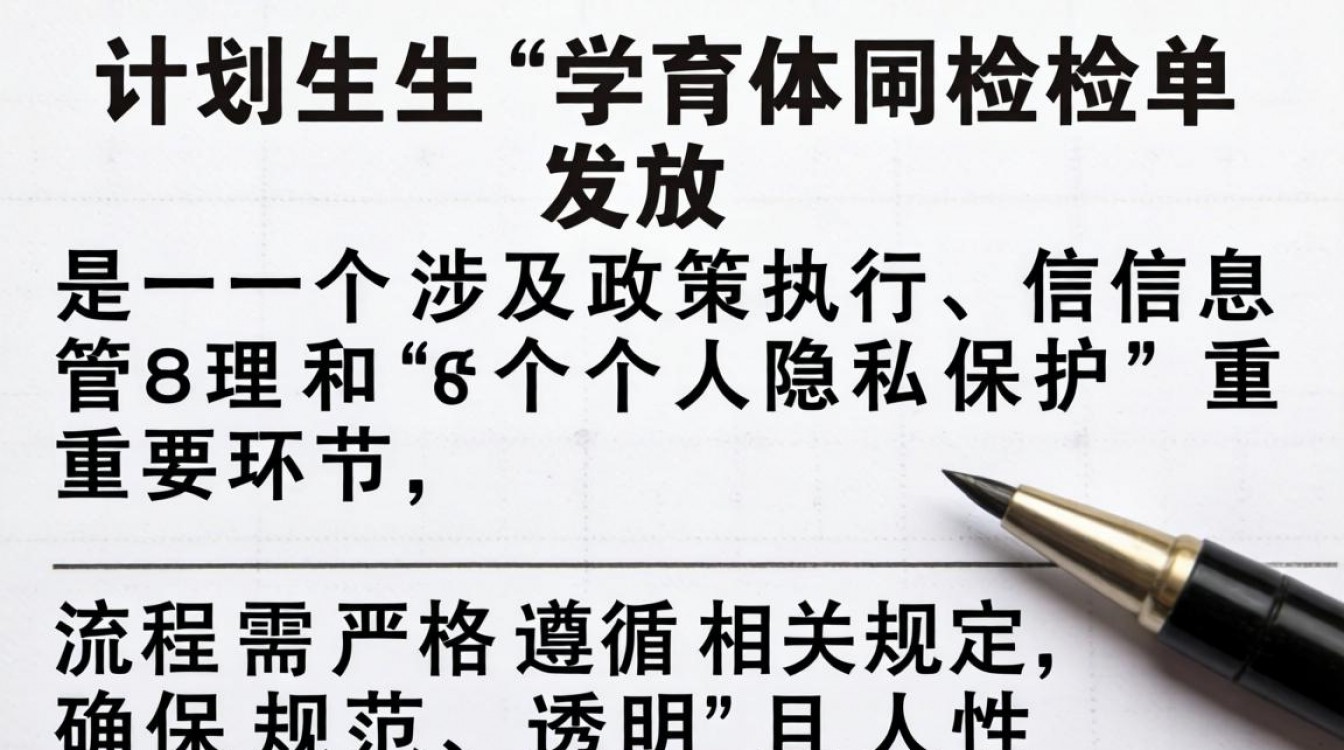 计划生生“学育体同检检单
发放
是一一个涉及政策执行、信信息
管8理和“6个个人隐私保护”重
重要环节,
流程需严格遵循相关规定,
确保规范、透明”且人性